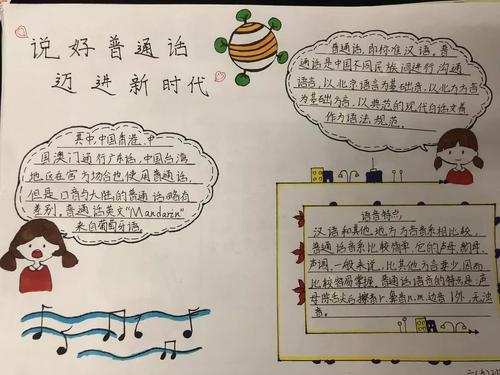 说好普通话
迈进新时代
普通话,即标准汉语。普
通话是中国不同民族间进行沟通
语言,以北京语音为基础音,以北方方言
为基础方言,以典范的现代白话文着
作为语法规范。
其中,中国香港、中
国澳门通行广东话,中国台湾
地区在官方场合也使用普通话,
但是口音与大陆的普通话略有
差别。普通话英文"Mandarin"
来自葡萄牙语。
语音特点
汉语和其他地方方言音系相比较,
普通话音系比较简单,它的声母、韵母
声调,一般来说,比其他方言要少,因而
比较容易掌握。普通话语音的特点是声
母除舌尖后擦音r、鼻音n.m.边音l外,无浊
音。